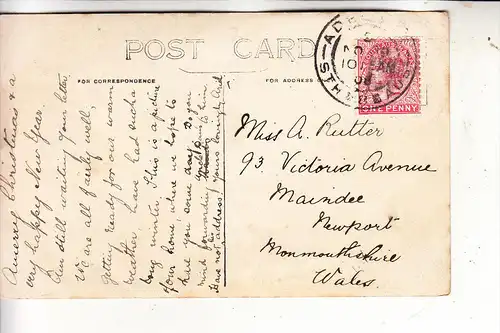 POST CARD
FOR CORRESPONDENCE
FOR ADDRESS
ADE
10 AM
ONE PENNY
A merry Christmas & a
very happy New Year.
Am still waiting your letter.
We are all fairly well,
getting ready for our warm
weather, have had such a
long winter. This is a picture
your home where we hope to
have you some day. Do you
mind forwarding to him
Have not address. Yours lovingly
Miss A. Rutter
93 Victoria Avenue
Maindee
Newport
Monmouthshire
Wales.